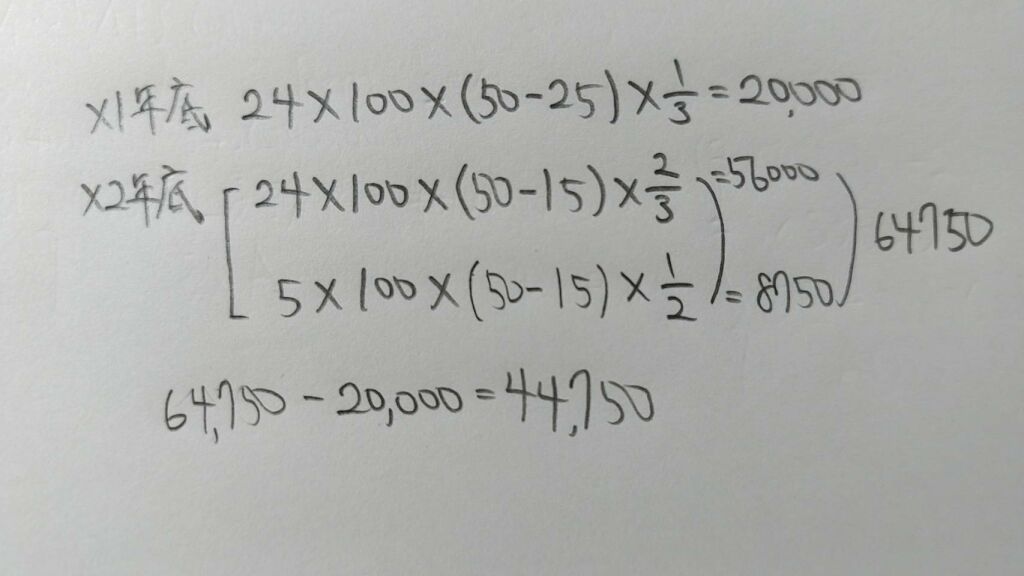 X1年底 24×100×(50-25)×1/3=20,000
X2年底 [24×100×(50-15)×2/3)=56000
5×100×(50-15)×1/2)=8750) 64750
64,750-20,000=44,750